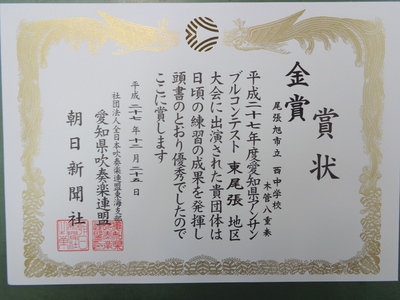 賞状
金賞
尾張旭市立 西中学校
木管八重奏
平成二十七年度愛知県アンサン
ブルコンテスト 東尾張 地区
大会に出演された貴団体は
日頃の練習の成果を発揮し
頭書のとおり優秀でしたので
ここに賞します
平成 二十七 年 十二 月 二十五 日
社団法人全日本吹奏楽連盟東海支部
愛知県吹奏楽連盟
朝日新聞社